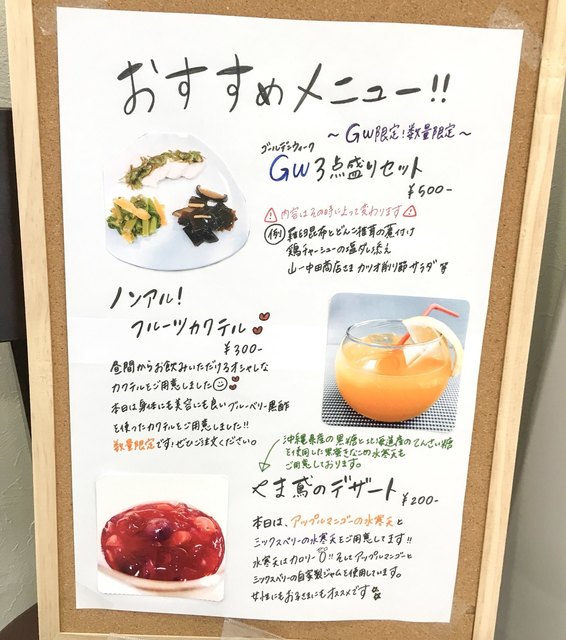 おすすめメニュー!!
～GW限定!数量限定～
ゴールデンウィーク
GW3点盛りセット
¥500-
⚠内容はその時によって変わります⚠
例 羅臼昆布とどんこ椎茸の煮付け
鶏チャーシューの塩ダレ添え
山一中田商店さま カツオ削り節サラダ 等
ノンアル!
フルーツカクテル
¥300-
昼間からお飲みいただけるオシャレな
カクテルをご用意しました
本日は身体にも美容にも良いブルーベリー黒酢
を使ったカクテルをご用意しました!!
数量限定です!ぜひご注文ください。
沖縄県産の黒糖と北海道産のてんさい糖
を使用した黒蜜きなこの水寒天も
ご用意しております。
やま鳶のデザート
¥200-
本日は、アップルマンゴーの水寒天と
ミックスベリーの水寒天をご用意してます!!
水寒天はカロリー0!!そしてアップルマンゴーと
ミックスベリーの自家製ジャムを使用しています。
女性にもお子さまにもオススメです